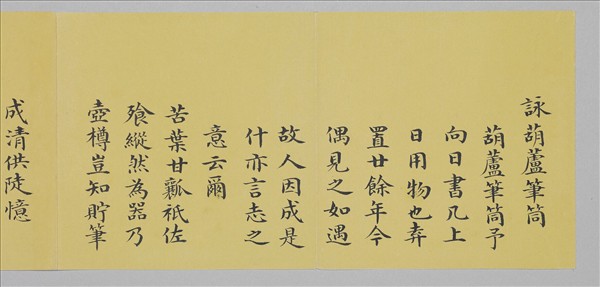 詠葫蘆筆筒
葫蘆筆筒予
向日書几上
日用物也弆
置廿餘年今
偶見之如遇
故人因成是
什亦言志之
意云爾
苦葉甘瓤祇佐
飱縱然為器乃
壺樽豈知貯筆
成清供陡憶